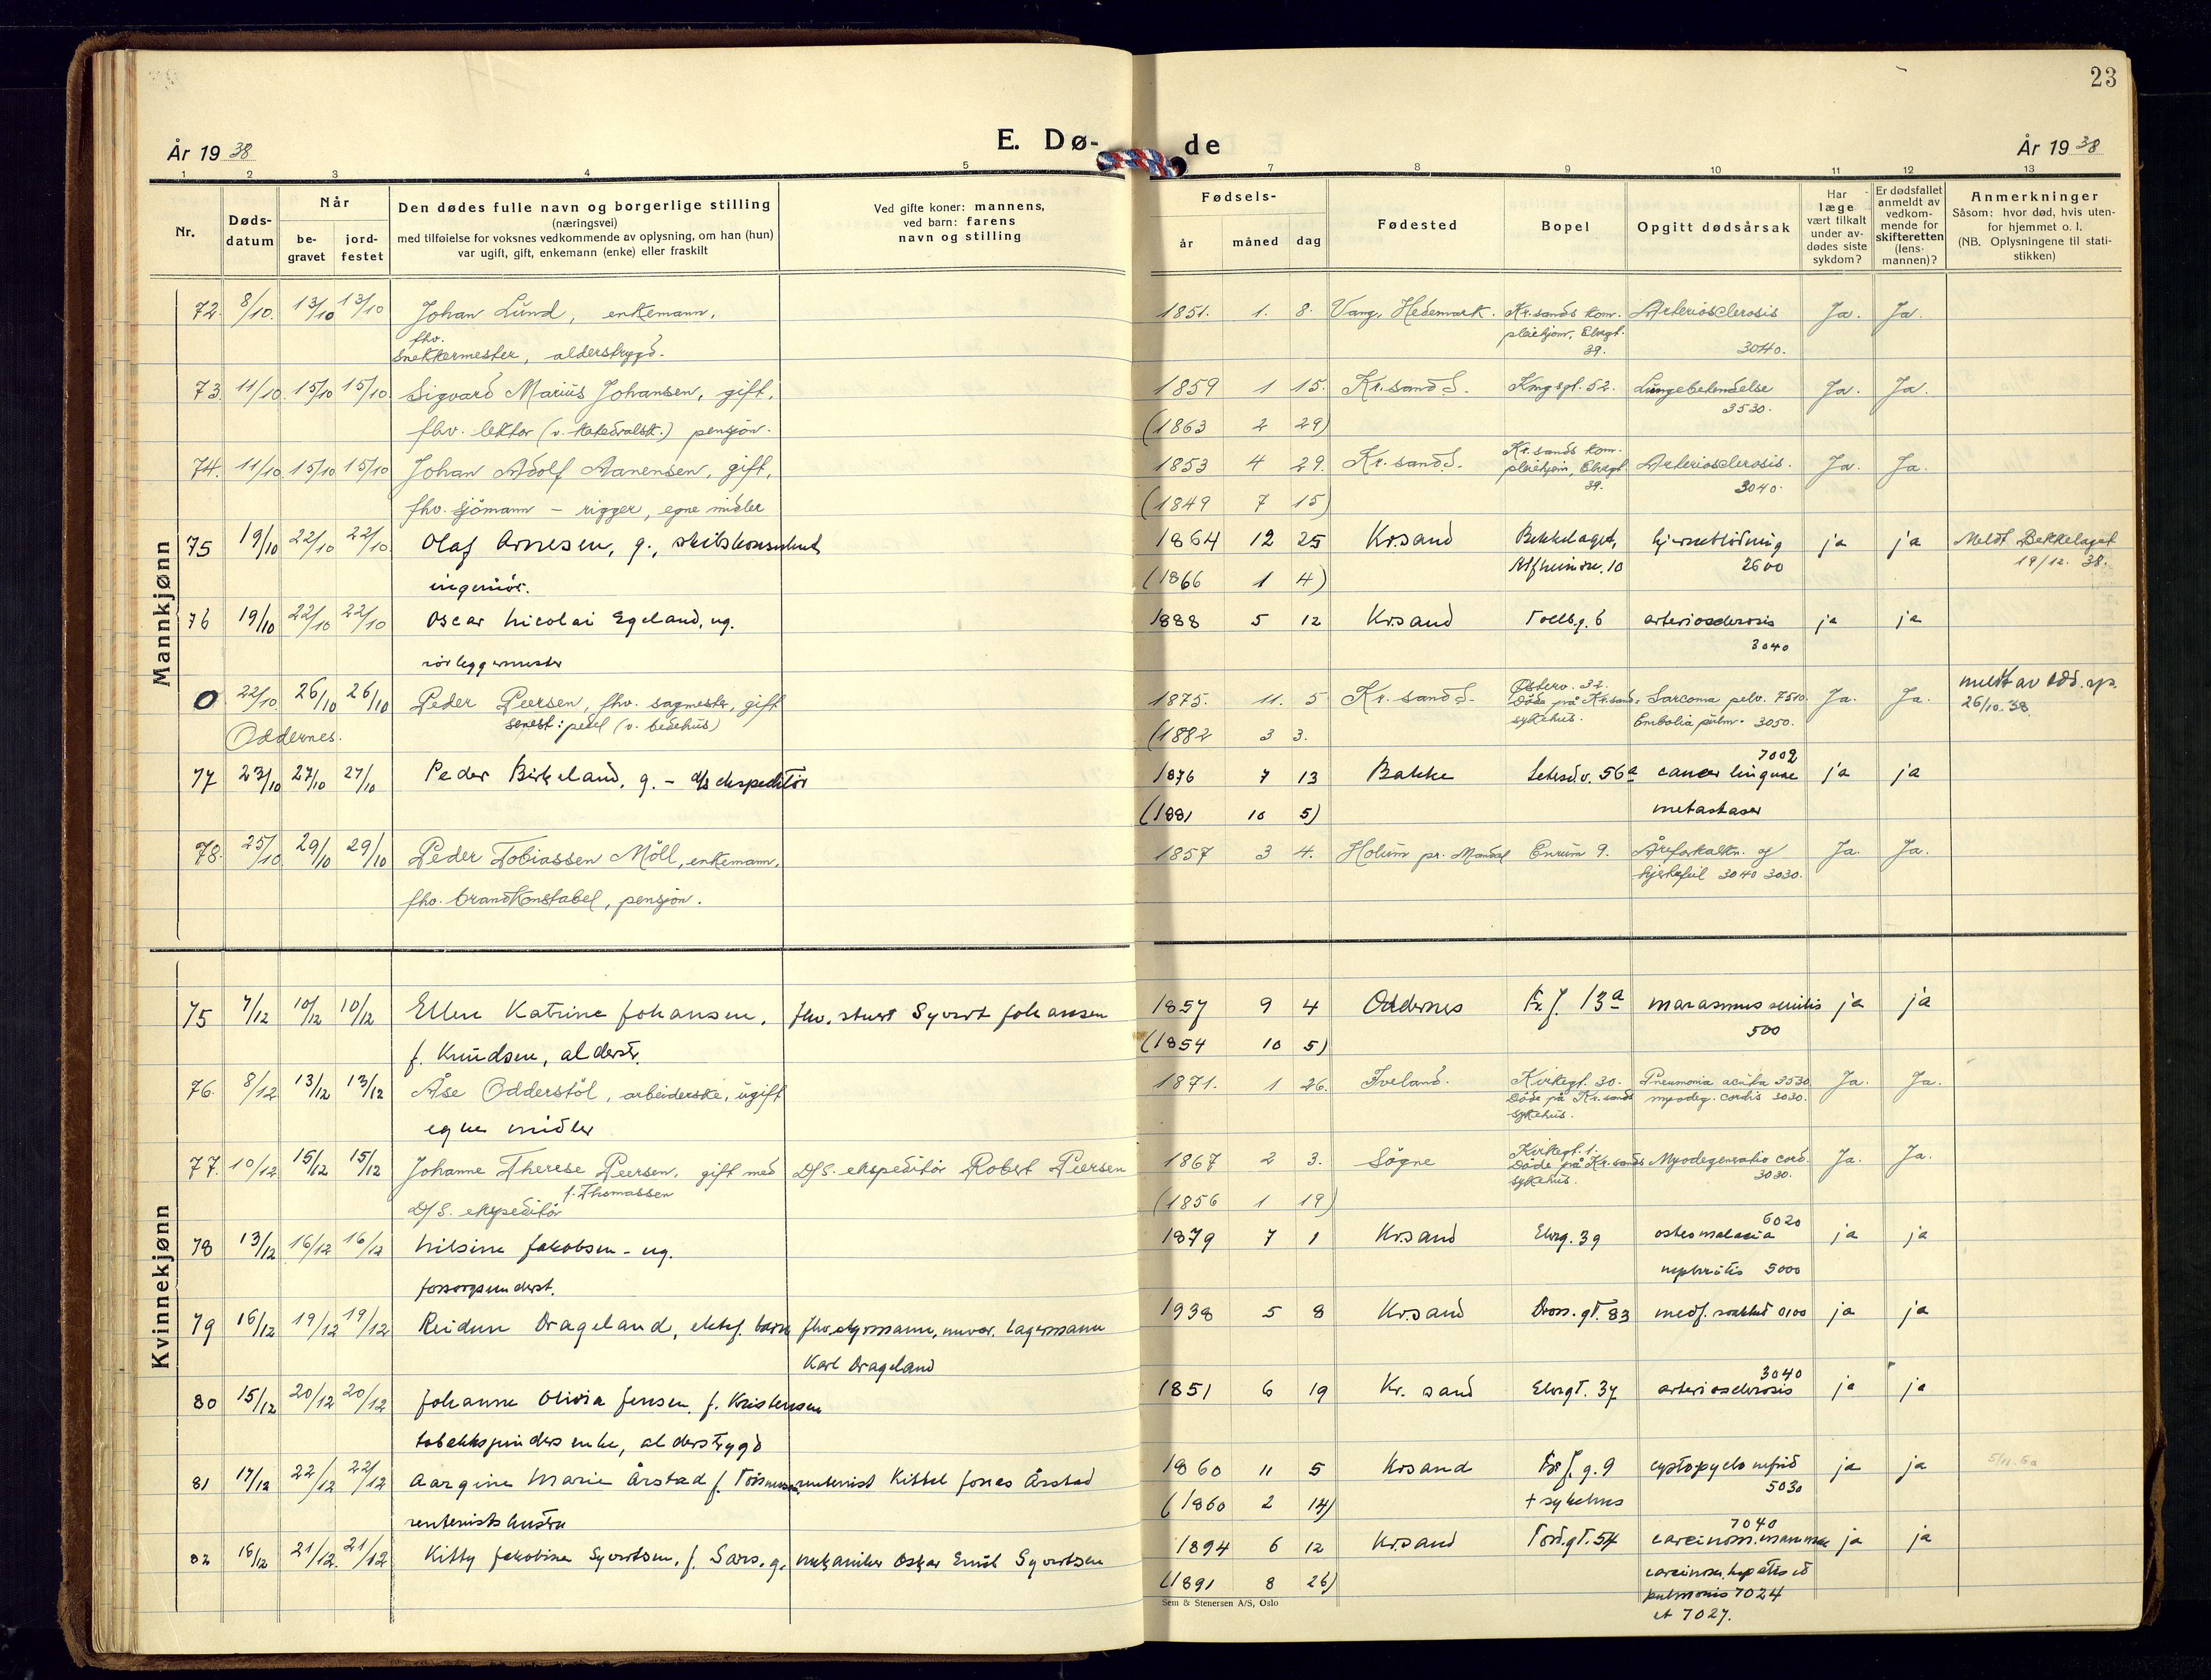 23
År 1938
E. Dø-
de
År 1938
1 2 3 4 5 7 8 9 10 11 12 13
Nr.
Dødsdatum
Når
begravet
jordfestet
Den dødes fulle navn og borgerlige stilling
(næringsvei)
med tilføielse for voksnes vedkommende av oplysning, om han (hun)
var ugift, gift, enkemann (enke) eller fraskilt
Ved gifte koner: mannens,
ved barn: farens
navn og stilling
Fødsels-
år måned dag
Fødested
Bopel
Opgitt dødsårsak
Har
læge
vært tilkalt
under av-
dødes siste
sykdom?
Er dødsfallet
anmeldt av
vedkom-
mende for
skifteretten
(lens-
mannen)?
Anmerkninger
Såsom: hvor død, hvis uten-
for hjemmet o. l.
(NB. Oplysningene til stati-
stikken)
Mannkjønn
72. 8/10. 13/10 13/10 Johan Lund, enkemann, 1851. 1. 8. Vang, Hedemark. Kr.sands kom. Arteriosclerosis Ja. Ja.
fhv. pleiehjem, Elvegt.
snekkermester, alderstrygd. 39. 3040.
73. 11/10. 15/10 15/10. Sigvard Marius Johansen, gift, 1859 1 15. Kr.sand S. Kongsgt. 52. Lungebetendelse Ja. Ja.
3530.
fhv. lektor (v. katedralsk.) pensjon. (1863 2 29)
74. 11/10. 15/10 15/10 Johan Adolf Aanensen, gift, 1853 4 29. Kr.sand S. Kr.sands kom. pleiehjem, Elvegt. 39. Arteriosclerosis. 3040. Ja. Ja.
fhv. sjömann - rigger, egne midler (1849 7 15)
75 19/10 22/10 22/10 Olaf Arnesen, g., skibskonsulent 1864 12 25 Kr.sand Bekkelaget, hjerneblödning ja ja Meldt Bekkelaget
ingeniör. (1866 1 4) 10 2600 19/12. 38.
76 19/10 22/10 22/10 Oscar Nicolai Egeland, ug. 1888 5 12 Kr.sand Tollb.g. 6 arteriosclerosis ja ja
3040
rörleggermester
0 22/10 26/10 26/10 Peder Peersen, fhv. sagmester, gift 1875. 11. 5 Kr.sand S. Østerv. 32. Döde på Kr.sands sykehus. Sarcoma pelv. 7510. Ja. Ja. meldt av Odd. sp.
senest: pedel (v. bedehus) Embolia pulm. 3050. 26/10.38.
Oddernes. (1882 3 3.
77 23/10 27/10 27/10 Peder Birkeland, g. - d/s ekspeditör 1876 7 13 Bakke Setesd.v. 56a cancer linguae 7002 ja ja
(1881 10 5) metastaser
78. 25/10 29/10 29/10 Peder Tobiassen Möll, enkemann, 1857 3 4. Holum pr. Mandal Enrum 9. Åreforkalkn. og Ja. Ja.
hjertefeil 3040 3030.
fhv. brandkonstabel, pensjon.
Kvinnekjønn
75 7/12 10/12 10/12 Ellen Katrine Johansen, fhv. stuert Syvert Johansen 1857 9 4 Oddernes 13a marasmus senilis ja ja
500
f. Knudsen, alderstr. (1854 10 5)
76. 8/12 13/12 13/12 Åse Odderstöl, arbeiderske, ugift 1871. 1 26. Iveland. Kirkegt. 30. Döde på Kr.sands sykehus. Pneumonia acuta 3530 Ja. Ja.
myodeg. cordis 3030.
egne midler
77. 10/12 15/12 15/12 Johanne Therese Peersen, gift med D/S. ekspeditör Robert Peersen 1867 2 3. Sögne Kirkegt. 1. Döde på Kr.sands sykehus. Myodegeneratio cord. Ja. Ja.
3030.
f. Thomassen
D/S. ekspeditör (1856 1 19)
78 13/12 16/12 16/12 Nilsine Jakobsen - ug. 1879 7 1 Kr.sand Elveg. 39 osteomalacia 6020 ja ja
forsorgsunderst. nephritis 5000
79 16/12 19/12 19/12 Reidun Drageland, ektef. barn fhv. styrmann, nuvær. lagermann 1938 5 8 Kr.sand Dronn.gt. 83 medf. svakhet 0100 ja ja
Karl Drageland
80 15/12 20/12 20/12 Johanne Olivia Jensen, f. Kristensen 1851 6 19 Kr.sand Elvegt. 37 3040 arteriosclerosis ja ja
tobakkspinders enke, alderstrygd
81 17/12 22/12 22/12 Aargine Marie Årstad f. rentenist Kittel Jonas Årstad 1860 11 5 Kr.sand g. 9 cystopyelonefrid ja ja
5030
rentenists hustru (1860 2 14) + sykehus
82 16/12 21/12. 21/12 Kitty Jakobine Syvertsen, f. Sars. g. mekaniker Oskar Emil Syvertsen 1894 6 12 Kr.sand Tord.gt. 54 7040 carcinom. mammae ja ja
(1891 8 26) carcinom. hepatis et
pulmonis 7024
et 7027.
Sem & Stenersen A/S, Oslo